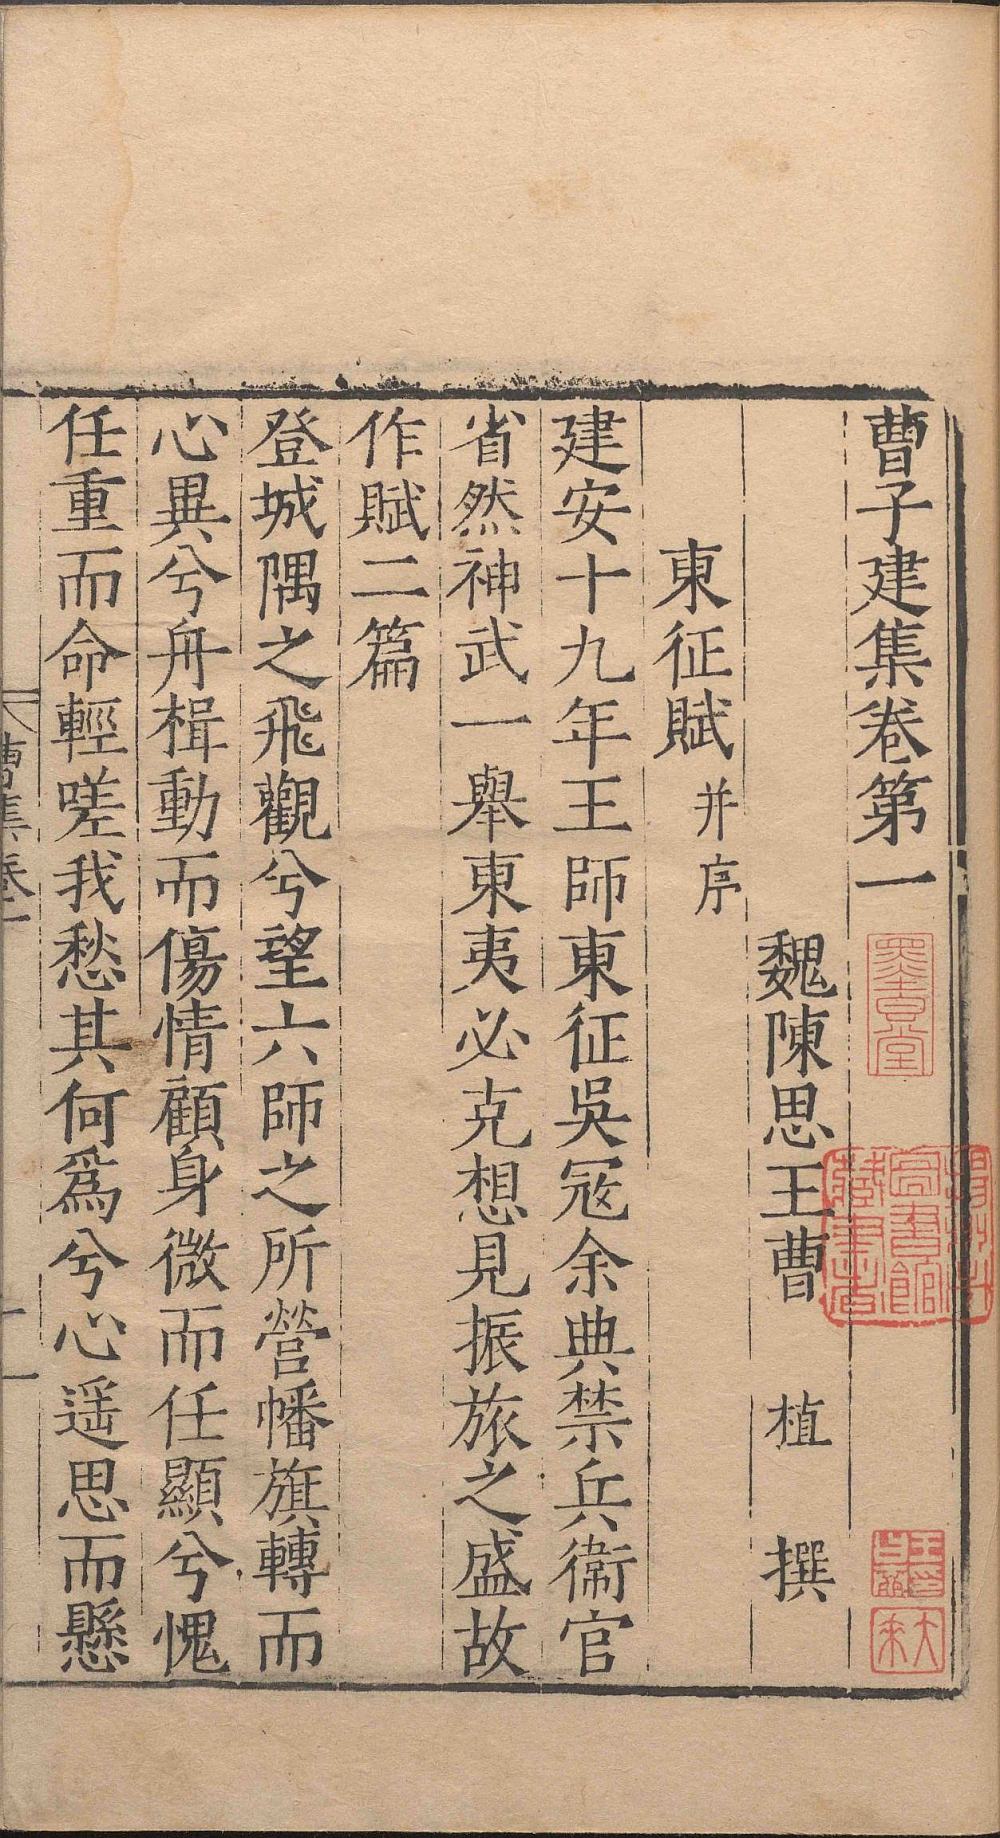 曹子建集卷第一
魏陳思王曹植撰
東征賦并序
建安十九年王師東征吳寇余典禁兵衞官
省然神武一舉東夷必克想見振旅之盛故
作賦二篇
登城隅之飛觀兮望六師之所營幡旗轉而
心異兮舟楫動而傷情顧身微而任顯兮愧
任重而命輕嗟我愁其何為兮心遥思而懸
曹集卷一